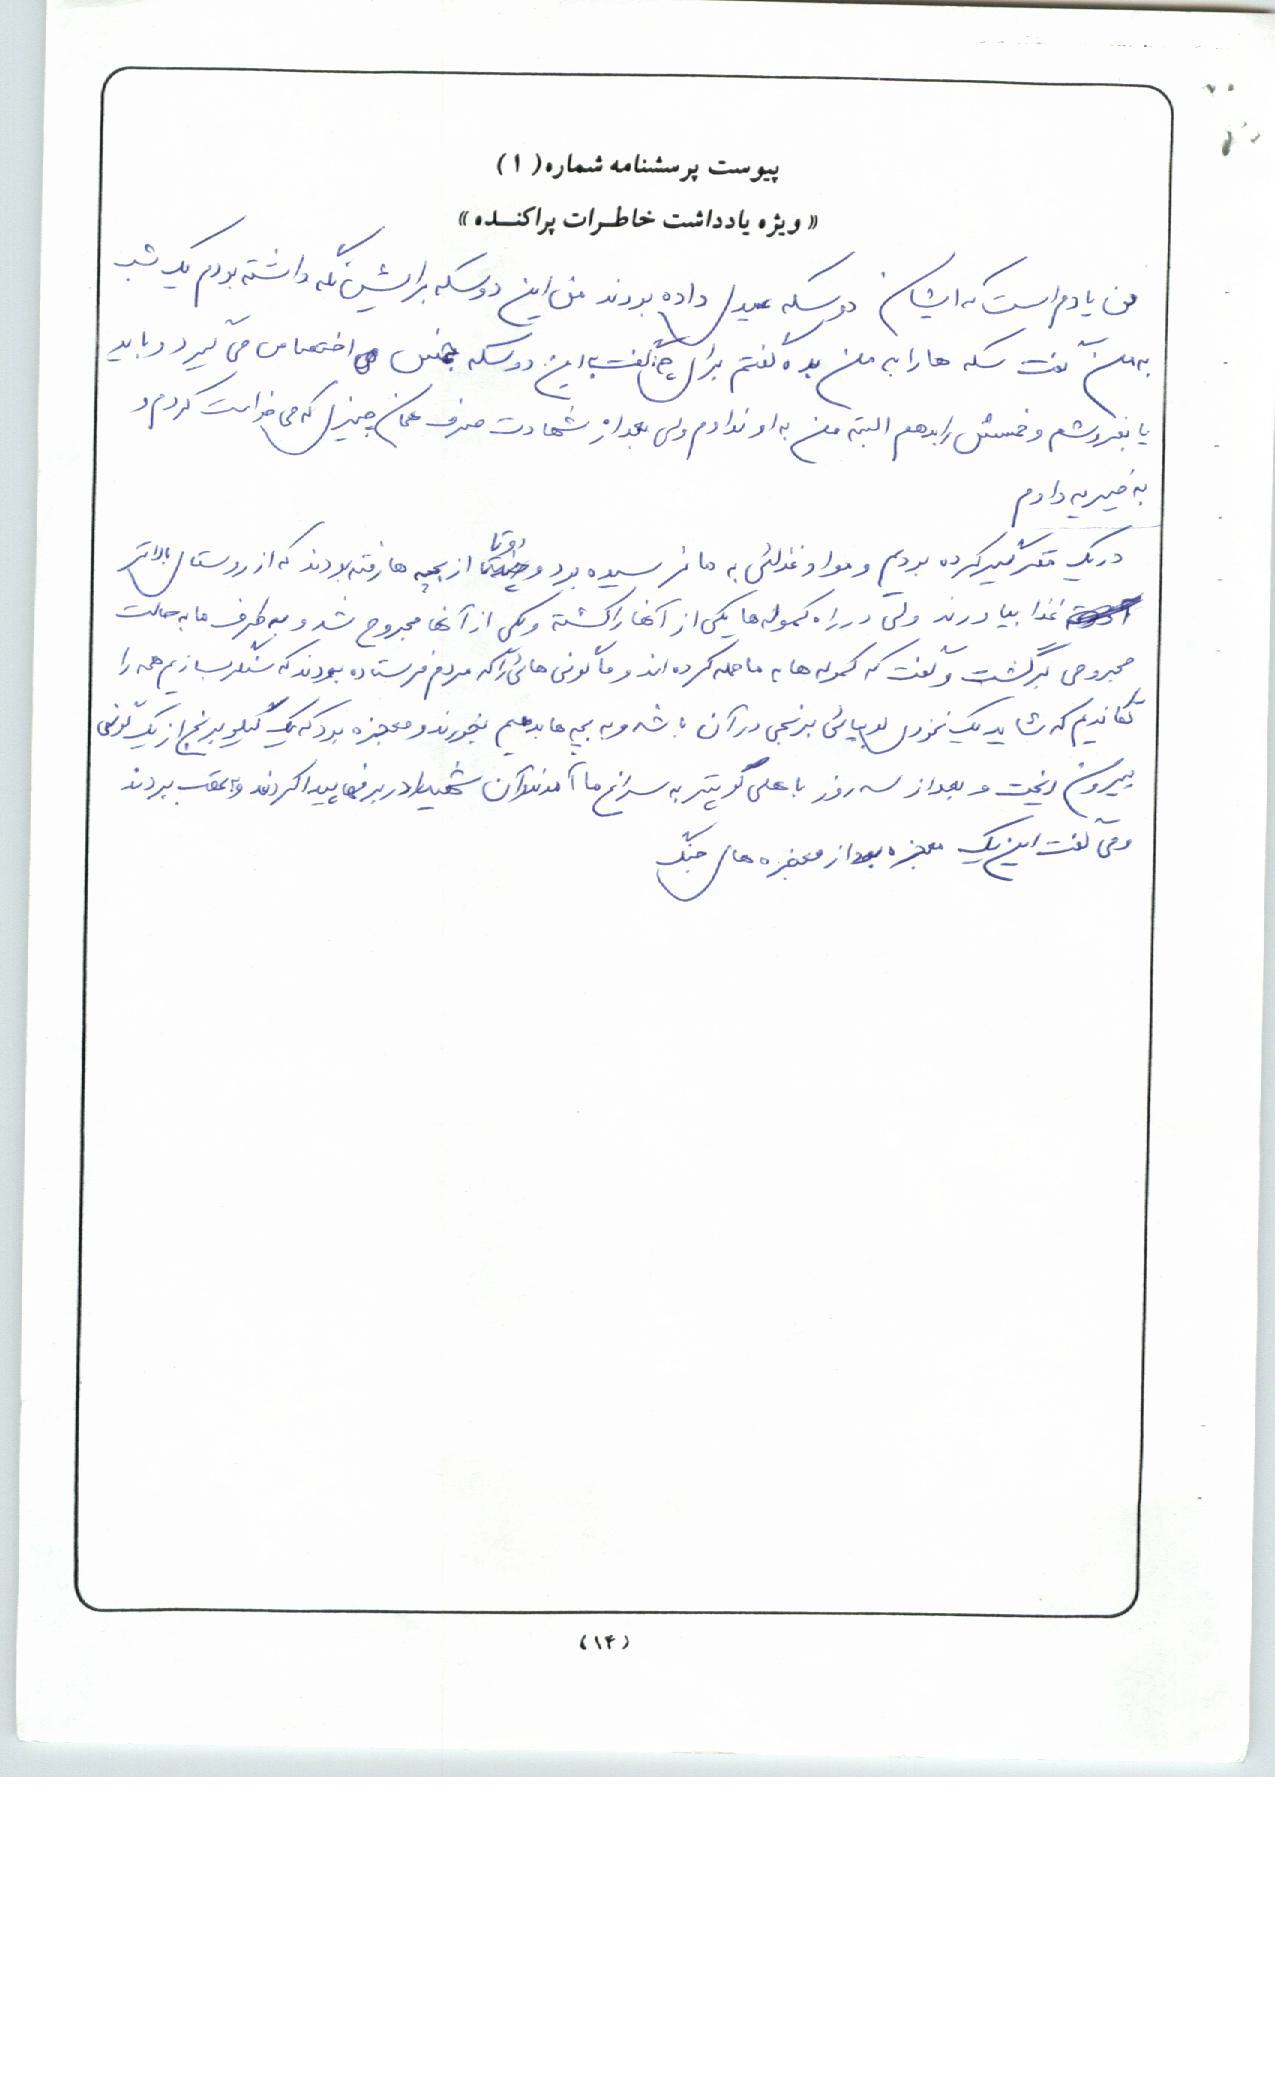 پیوست پرسشنامه شماره (۱)
« ویژه یادداشت خاطرات پراکنده »
من یادم است که ایشان دو سکه عیدی داده بودند من این دو سکه برایش نگه داشته بودم یک شب
به من گفت سکه ها را به من بده گفتم برای چی گفت به این دو سکه خمس اختصاص می گیرد و باید
یا بفروشم و خمسش را بدهم البته من به او ندادم ولی بعد از شهادت صرف همان چیزی که می خواست کردم و
به خیریه دادم
در یک مقر گیر کرده بودیم و مواد غذائی به ما نرسیده بود و دو تا از بچه ها رفته بودند که از روستای بالاتر
غذا بیاورند ولی در راه کموله ها یکی از آنها را کشته و یکی از آنها مجروح شد و به طرف ما به حالت
مجروحی برگشت و گفت که کموله ها به ما حمله کرده اند و ما گونی هائی را که مردم فرستاده بودند که سنگر بسازیم همه را
تکاندیم که شاید یک نخودی لوبیائی برنجی در آن باشه و به بچه ها بدهیم بخورند و معجزه بود که یک کیلو برنج از یک گونی
بیرون ریخت و بعد از سه روز با هلی کوپتر به سراغ ما آمدند و آن شهید را در برفها پیدا کردند و به عقب بردند
و می گفت این یک معجزه بود از معجزه های جنگ
(۱۴)